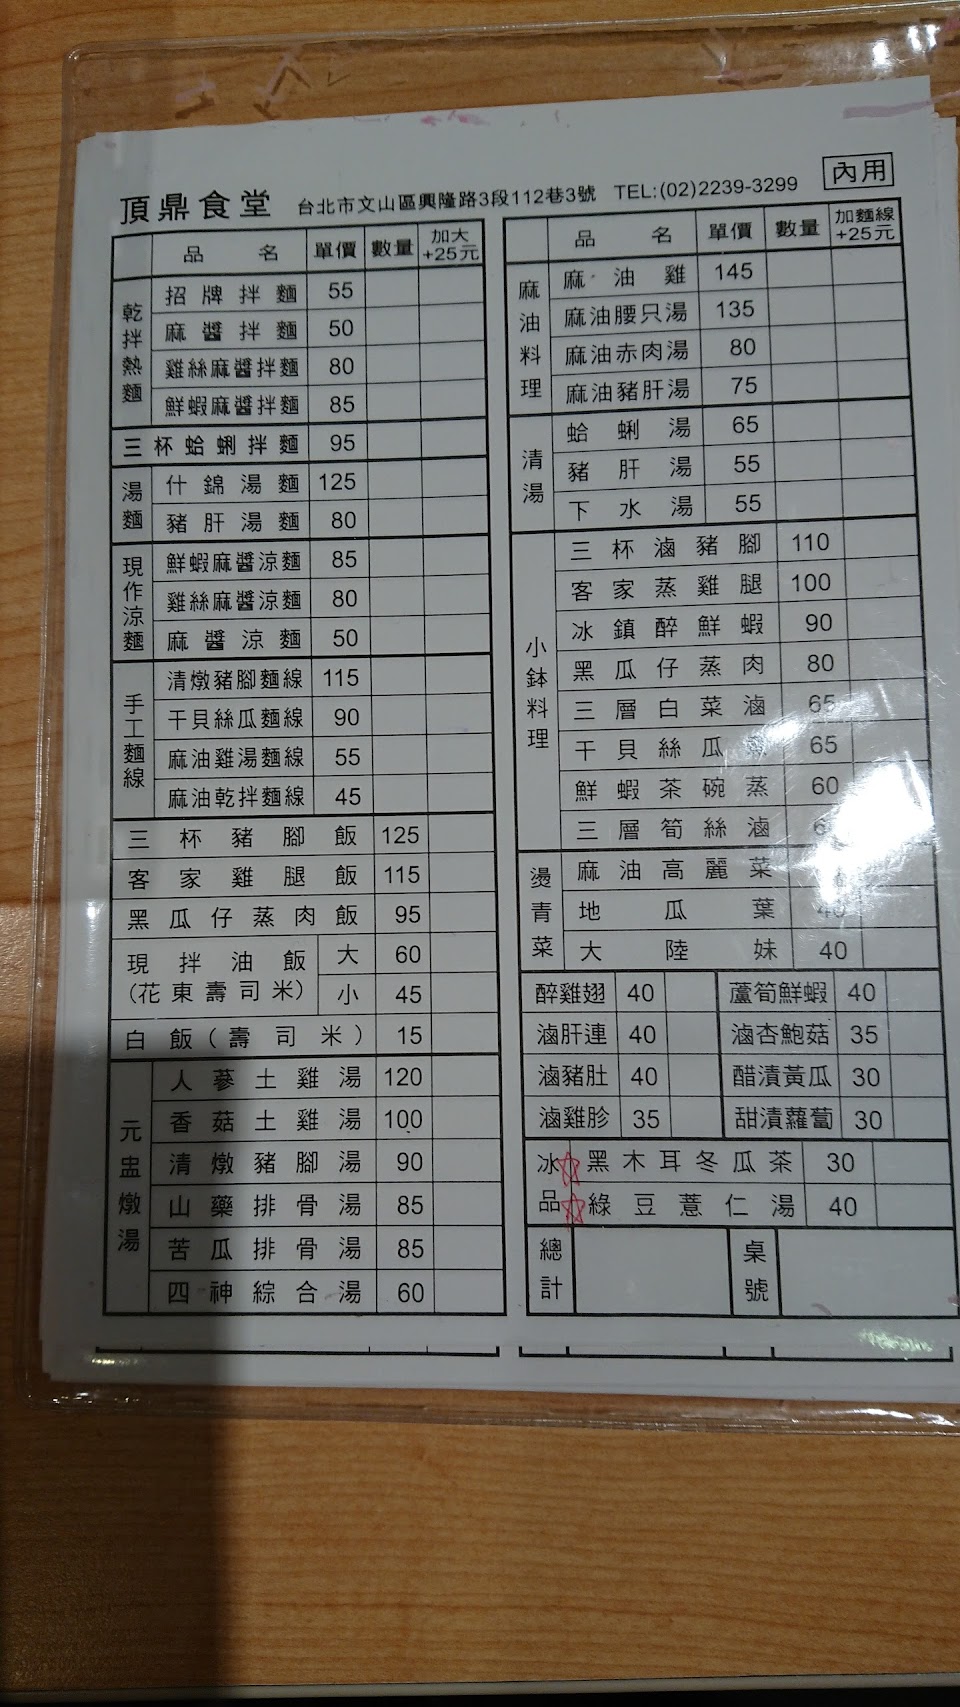 頂鼎食堂 台北市文山區興隆路3段112巷3號 TEL:(02)2239-3299 內用
品名 單價 數量 加大+25元
乾拌熱麵
招牌拌麵 55
麻醬拌麵 50
雞絲麻醬拌麵 80
鮮蝦麻醬拌麵 85
三杯蛤蜊拌麵 95
湯麵
什錦湯麵 125
豬肝湯麵 80
現作涼麵
鮮蝦麻醬涼麵 85
雞絲麻醬涼麵 80
麻醬涼麵 50
手工麵線
清燉豬腳麵線 115
干貝絲瓜麵線 90
麻油雞湯麵線 55
麻油乾拌麵線 45
三杯豬腳飯 125
客家雞腿飯 115
黑瓜仔蒸肉飯 95
現拌油飯 大 60
(花東壽司米) 小 45
白飯(壽司米) 15
元盅燉湯
人蔘土雞湯 120
香菇土雞湯 100
清燉豬腳湯 90
山藥排骨湯 85
苦瓜排骨湯 85
四神綜合湯 60
品名 單價 數量 加麵線+25元
麻油料理
麻油雞 145
麻油腰只湯 135
麻油赤肉湯 80
麻油豬肝湯 75
清湯
蛤蜊湯 65
豬肝湯 55
下水湯 55
小缽料理
三杯滷豬腳 110
客家蒸雞腿 100
冰鎮醉鮮蝦 90
黑瓜仔蒸肉 80
三層白菜滷 65
干貝絲瓜 65
鮮蝦茶碗蒸 60
三層筍絲滷
燙青菜
麻油高麗菜
地瓜葉 40
大陸妹 40
醉雞翅 40 蘆筍鮮蝦 40
滷肝連 40 滷杏鮑菇 35
滷豬肚 40 醋漬黃瓜 30
滷雞胗 35 甜漬蘿蔔 30
冰品
黑木耳冬瓜茶 30
綠豆薏仁湯 40
總計 桌號